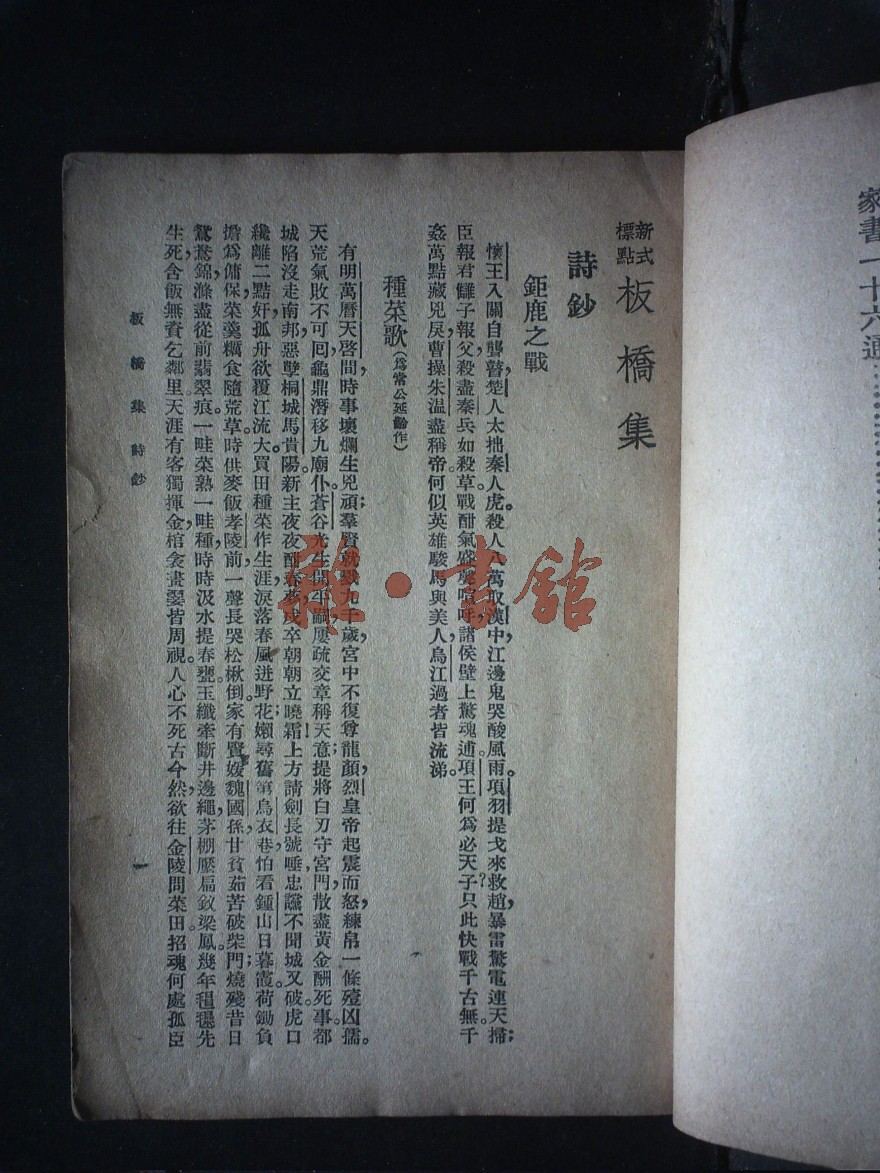 家書一十六通…………
新式標點 板橋集
詩鈔
鉅鹿之戰
懷王入關自聾瞽,楚人太拙秦人虎。殺人八萬取漢中,江邊鬼哭酸風雨。項羽提戈來救趙,暴雷驚電連天掃;
臣報君讎子報父,殺盡秦兵如殺草。戰酣氣盛聲喧呼,諸侯壁上驚魂逋。項王何爲必天子?只此快戰千古無。千
姦萬黠藏兇戾,曹操朱温盡稱帝。何似英雄駿馬與美人,烏江過者皆流涕。
種菜歌(爲常公延齡作)
有明萬曆天啓間,時事壞爛生兇頑;羣賢就戮九千歲,宮中不復尊龍顏。烈皇帝起震而怒,練帛一條殪凶孺。
天荒氣敗不可回,龜鼎潛移九廟仆。蒼谷先生開平嗣,屢疏交章稱天意;提將白刃守宮門,散盡黃金酬死事。都
城陷沒走南邦,惡孽桐城馬貴陽。新主夜夜酣春夢,戍卒朝朝立曉霜。上方請劍長號唾,忠讜不聞城又破。虎口
纔離二點奸,孤舟欲覆江流大。買田種菜作生涯,淚落春風迸野花;嬾尋舊第烏衣巷,怕看鍾山日暮霞。荷鋤負
擔爲傭保,菜羹糲食隨荒草。時供麥飯孝陵前,一聲長哭松楸倒。家有賢媛魏國孫,甘貧茹苦破柴門;燒殘昔日
鴛鴦錦,滌盡從前翡翠痕。一畦菜熟一畦種,時時汲水提春甕。玉纖牽斷井邊繩,茅棚壓扁釵梁鳳。幾年穩先
生死,含飯無資乞鄰里。天涯有客獨揮金,棺衾畫翣皆周視。人心不死古今然,欲往金陵問菜田。招魂何處孤臣
板橋集 詩鈔
一
雜·書館